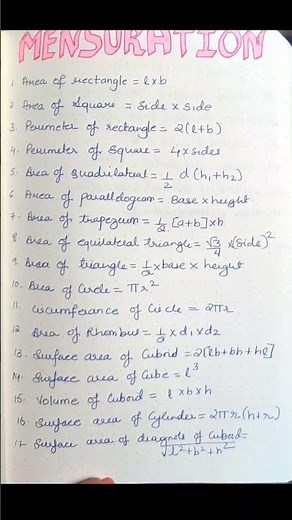 MENSURATION
1. Area of rectangle = l x b
2. Area of Square = Side x Side
3. Perimeter of rectangle = 2(l+b)
4. Perimeter of Square = 4 x sides
5. Area of Quadrilateral = 1/2 d (h₁+h₂)
6. Area of parallelogram = Base x height
7. Area of trapezium = 1/2 [a+b] x b
8. Area of equilateral triangle = √3/4 x (Side)²
9. Area of triangle = 1/2 x base x height
10. Area of Circle = πr²
11. circumferance of Circle = 2πr
12. Area of Rhombus = 1/2 x d₁ x d₂
13. Surface area of Cuboid = 2[lb+bh+hl]
14. Surface area of Cube = l³
15. Volume of Cuboid = l x b x h
16. Surface area of Cylender = 2πr(h+r)
17. Surface area of diagnole of Cuboid = √l²+b²+h²